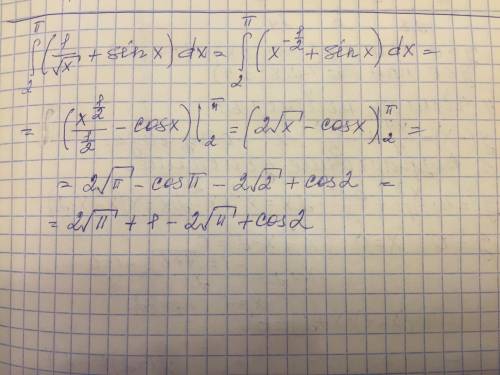 ∫₂^π (1/√x + sin x) dx = ∫₂^π (x^(-1/2) + sin x) dx =
= (x^(1/2)/(1/2) - cos x) |₂^π = (2√x - cos x) |₂^π =
= 2√π - cos π - 2√2 + cos 2 =
= 2√π + 1 - 2√π + cos 2